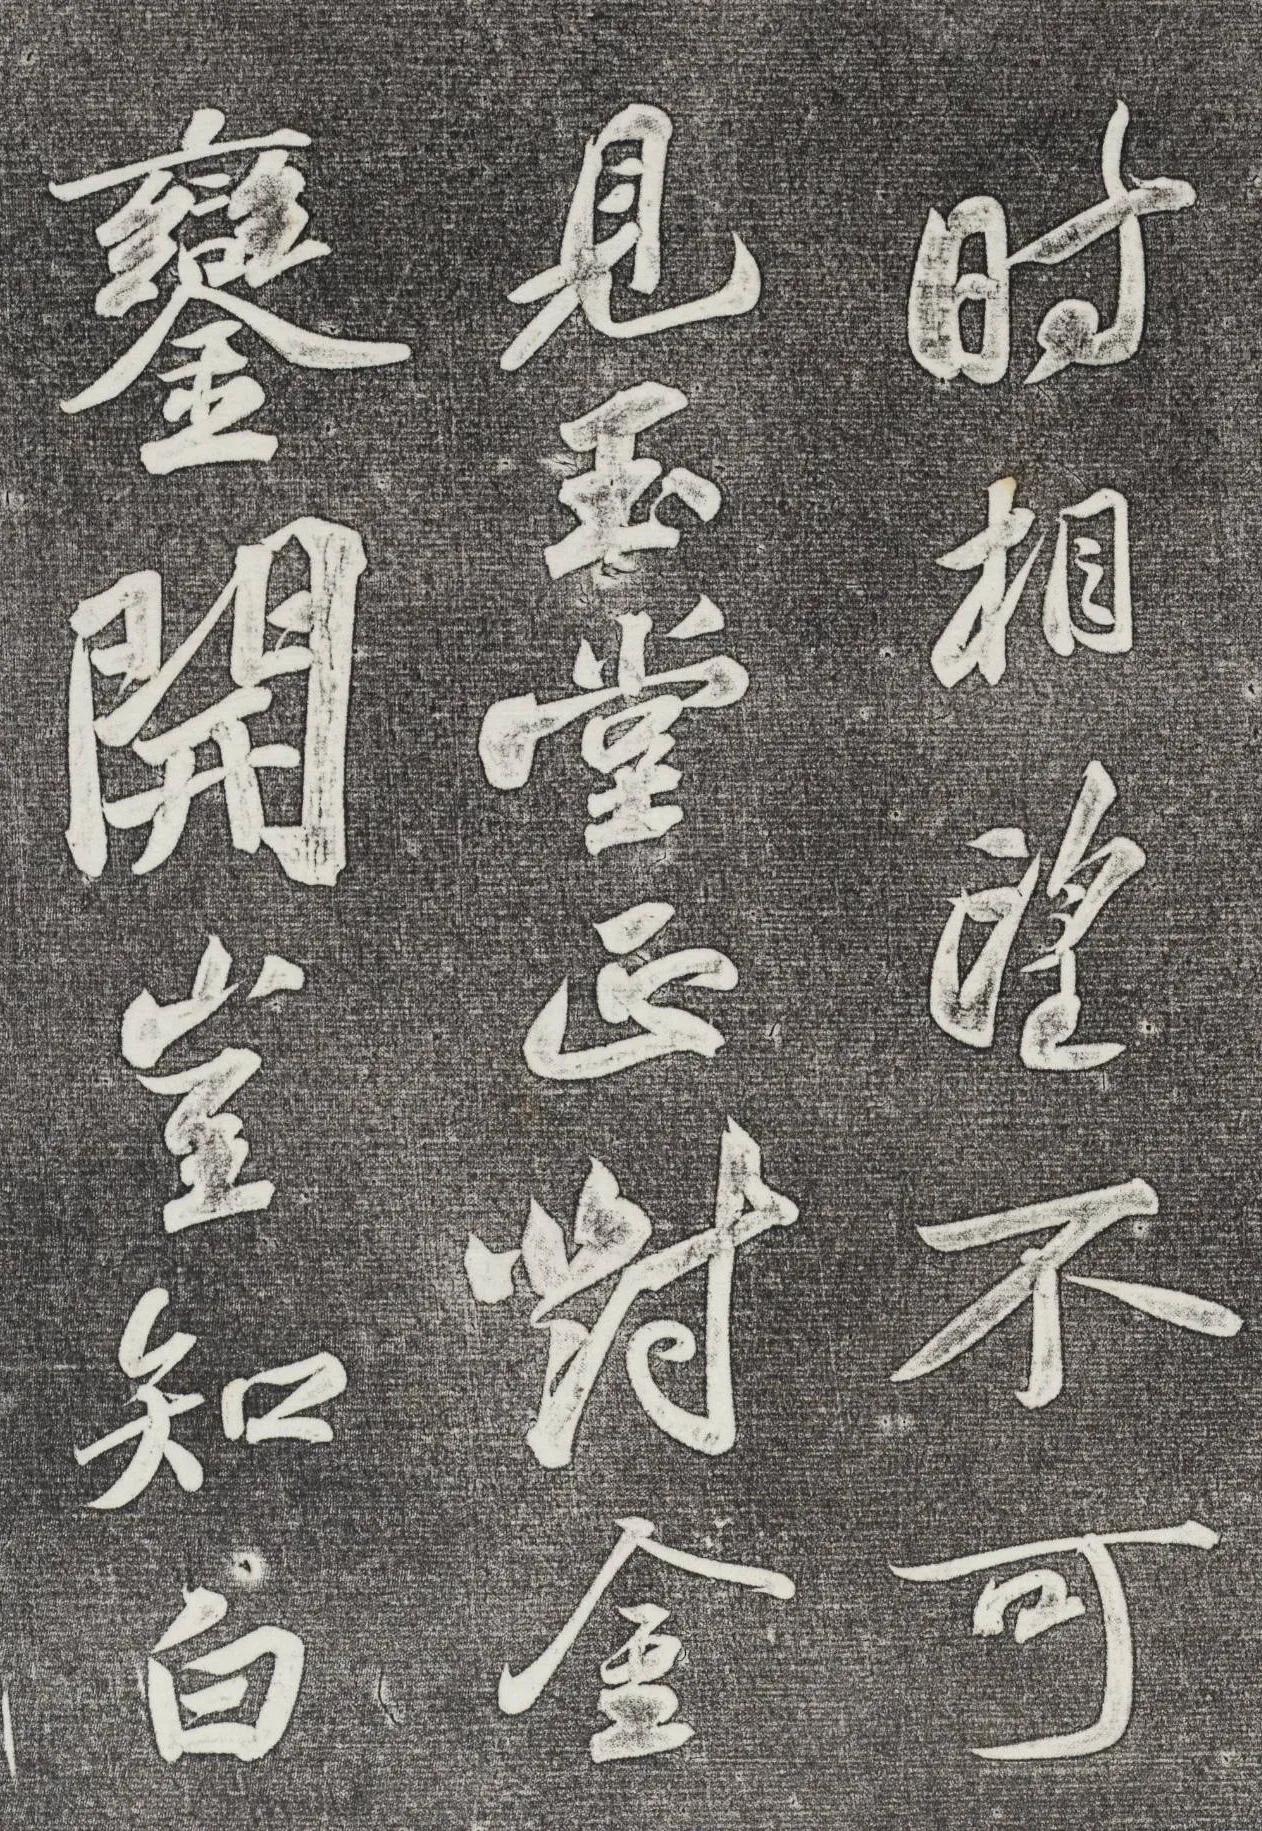 時相望不可
見玉堂正對金
鑾開豈知白